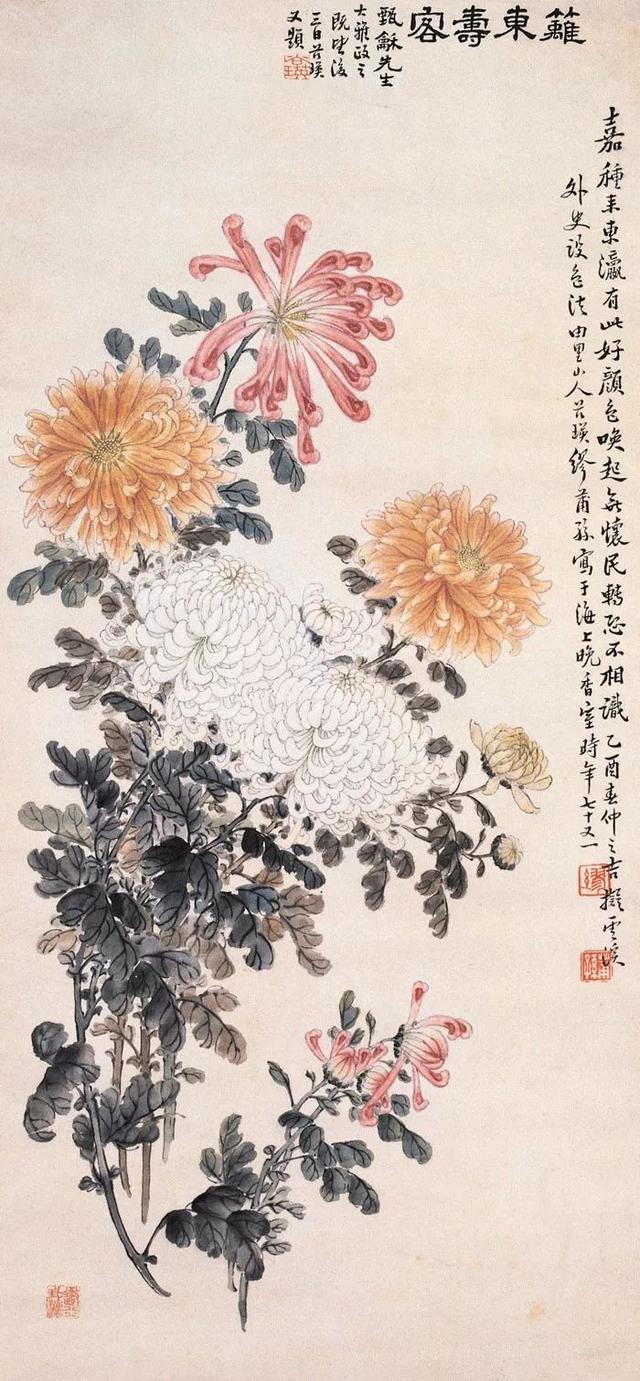 籬東壽客
甄龢先生
大雅政之
既望後
三日谷瑛
又題
嘉種来東瀛有此好顏色喚起無懷民轉恐不相識 乙酉春仲之吉擬雲溪
外史設色法由里山人谷瑛繆莆孫寫于海上晚香室時年七十又一
繆
莆孫